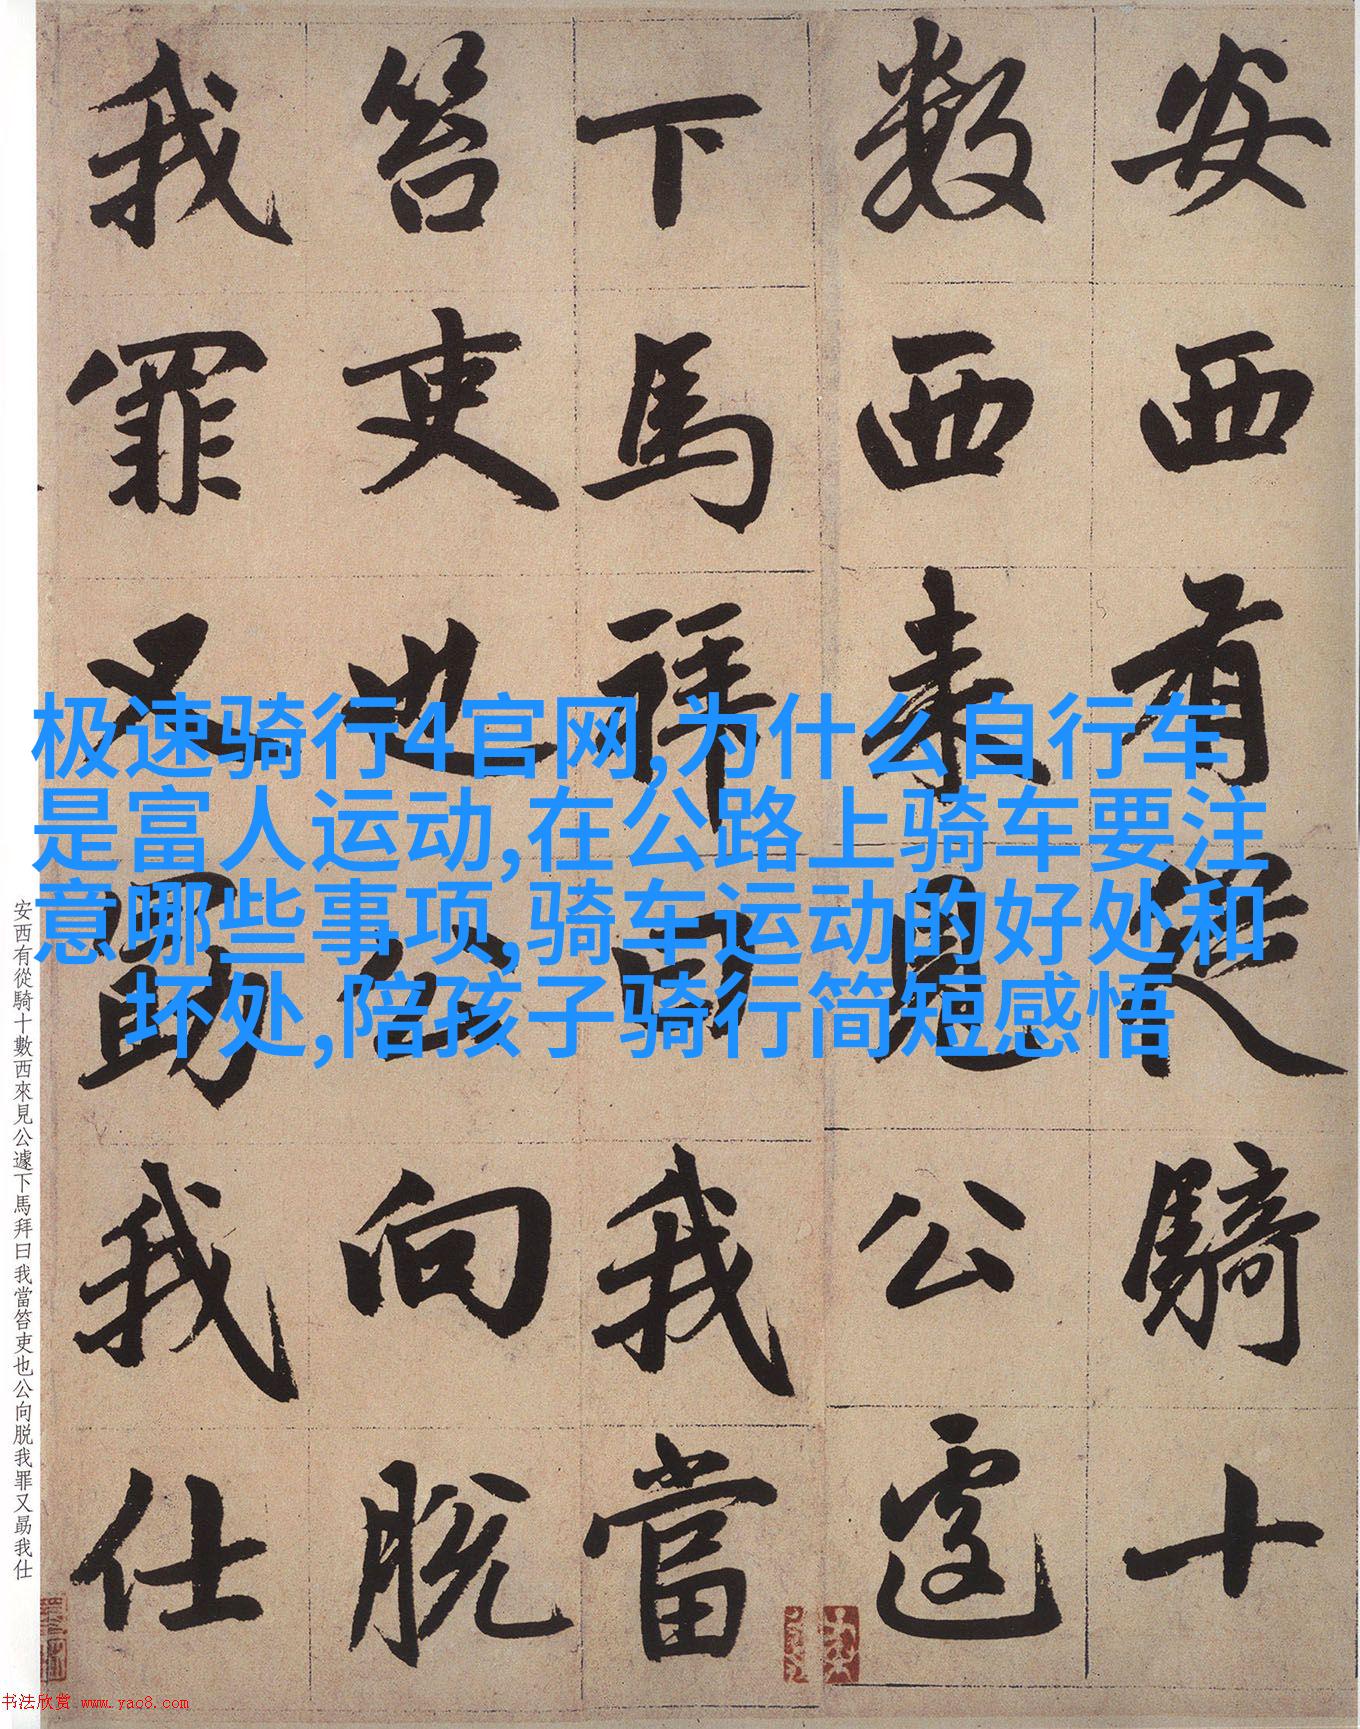 安西有從騎十
數西来見公遽
下馬拜曰我當
笞吏也公向脱
我罪又勗我仕
极速骑行4官网,为什么自行车
是富人运动,在公路上骑车要注
意哪些事项,骑车运动的好处和
坏处,陪孩子骑行简短感悟
安西有從騎十數西來見公遽下馬拜曰我當笞吏也公向脱我罪又勗我仕
书法欣赏 www.yac8.com